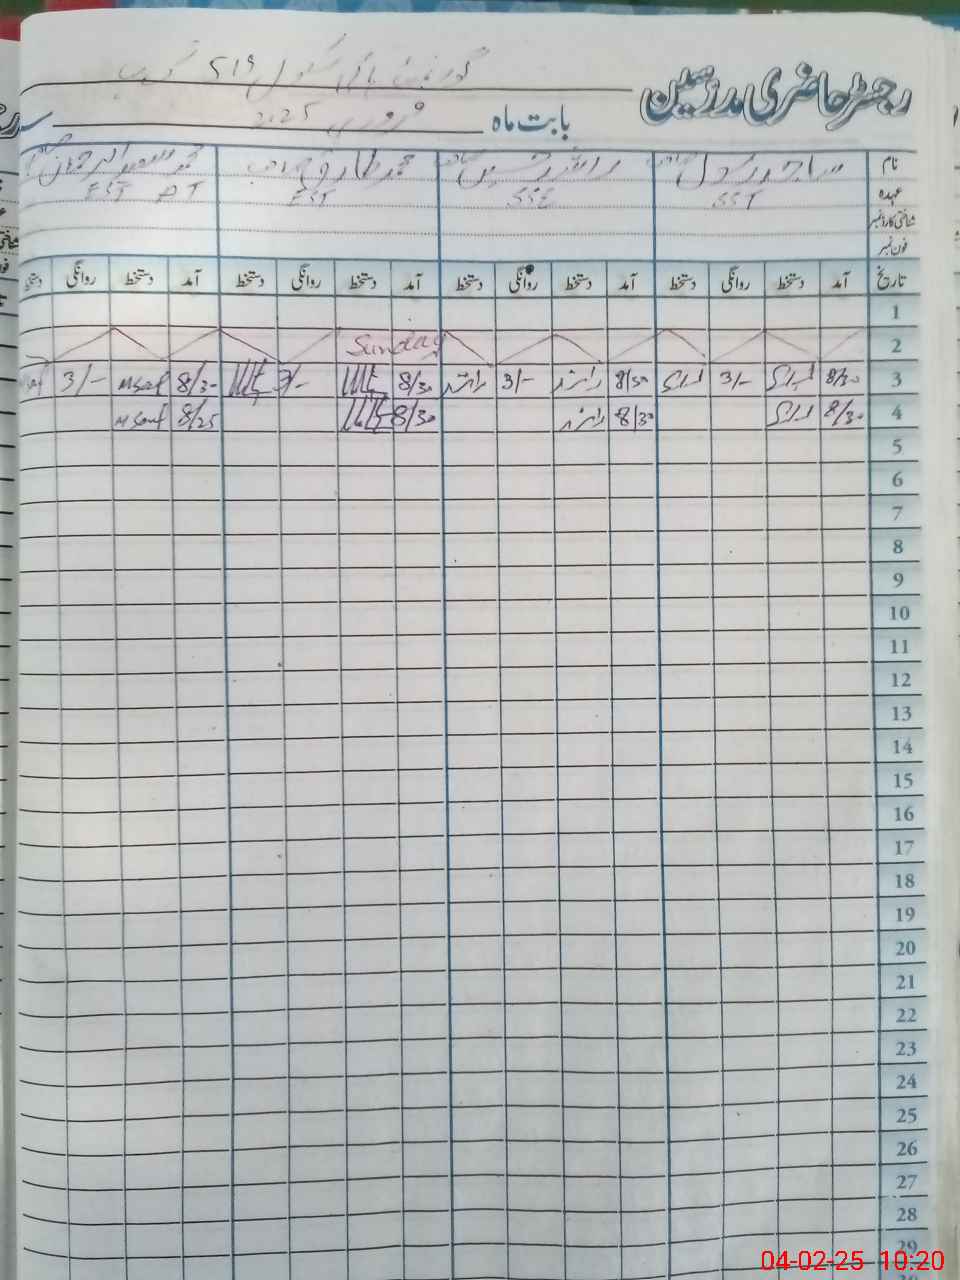 رجسٹر حاضری مدرسین
گورنمنٹ ہائی سکول 519
بابت ماہ فروری 2025
نام ساجد رسول راشد حسین محمد طارق محمد سعید الرحمٰن
عہدہ SST SSE EST EST AT
شناختی کارڈ نمبر
فون نمبر
تاریخ آمد دستخط روانگی دستخط آمد دستخط روانگی دستخط آمد دستخط روانگی دستخط آمد دستخط روانگی دستخط
1
2 Sunday
3 8/30 3/- 8/30 راشد 3/- راشد 8/30 3/- 8/30 3/-
4 8/30 8/30 راشد 8/30 8/25
5
6
7
8
9
10
11
12
13
14
15
16
17
18
19
20
21
22
23
24
25
26
27
28
29
04-02-25 10:20